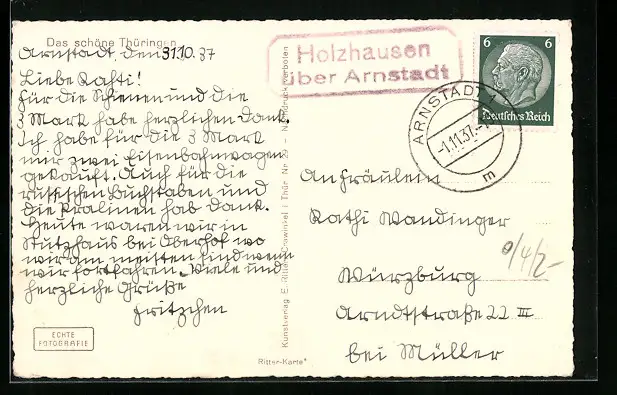 Das schöne Thüringen
Arnstadt, den 31.10.37
Liebe Kathi!
Für die Schienen und die
3 Mark habe herzlichen Dank.
Ich habe für die 3 Mark
mir zwei Eisenbahnwagen
gekauft. Auch für die
russischen Buchstaben und
die Pralinen hab Dank.
Heute waren wir in
Stutzhaus bei Oberhof wo
wir am meisten sind wenn
wir fortfahren. Viele und
herzliche Grüße
Fritzchen
ECHTE
FOTOGRAFIE
Kunstverlag E. Ritter, Crawinkel i. Thür. Nr. 29 - Nachdruck verboten
Ritter-Karte
Holzhausen
über Arnstadt
ARNSTADT 1
-1.11.37.-
m
6 6
Deutsches Reich
An Fräulein
Kathi Wandinger
Würzburg
Arndtstraße 22 III
bei Müller